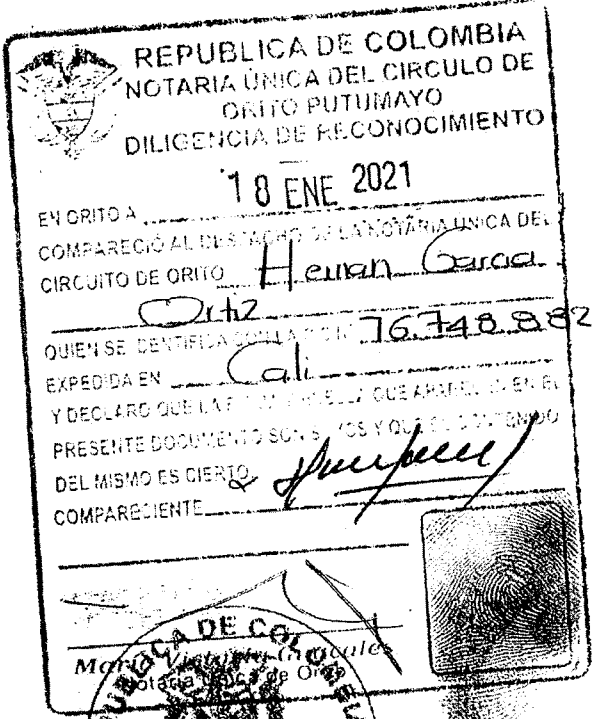 REPUBLICA DE COLOMBIA
NOTARIA ÚNICA DEL CIRCULO DE
ORITO PUTUMAYO
DILIGENCIA DE RECONOCIMIENTO
18 ENE 2021
EN ORITO A
COMPARECIÓ AL DESPACHO DE LA NOTARIA UNICA DEL
CIRCUITO DE ORITO Hernan Garcia
Ortiz
QUIEN SE IDENTIFICA CON LA 76.748.882
EXPEDIDA EN Cali
Y DECLARO QUE LA QUE EN EL
PRESENTE DOCUMENTO SON SUYOS Y QUE EL CONTENIDO
DEL MISMO ES CIERTO
COMPARECIENTE
REPUBLICA DE COLOMBIA
Notaria Unica de Orito